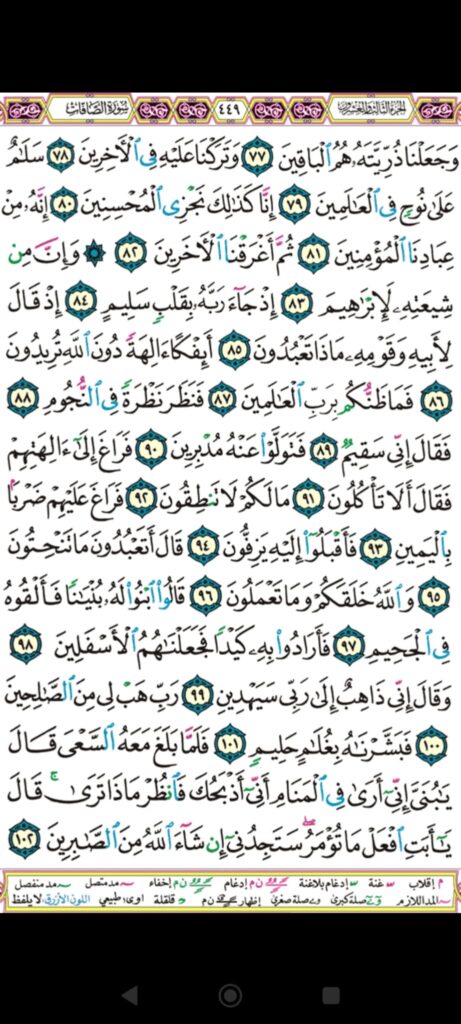 الجزء الثالث والعشرون ٤٤٩ سورة الصافات
وَجَعَلْنَا ذُرِّيَّتَهُۥ هُمُ ٱلْبَاقِينَ ٧٧ وَتَرَكْنَا عَلَيْهِ فِى ٱلْأَخِرِينَ ٧٨ سَلَٰمٌ
عَلَىٰ نُوحٍ فِى ٱلْعَٰلَمِينَ ٧٩ إِنَّا كَذَٰلِكَ نَجْزِى ٱلْمُحْسِنِينَ ٨٠ إِنَّهُۥ مِنْ
عِبَادِنَا ٱلْمُؤْمِنِينَ ٨١ ثُمَّ أَغْرَقْنَا ٱلْأَخَرِينَ ٨٢ وَإِنَّ مِن
شِيعَتِهِۦ لَإِبْرَٰهِيمَ ٨٣ إِذْ جَآءَ رَبَّهُۥ بِقَلْبٍ سَلِيمٍ ٨٤ إِذْ قَالَ
لِأَبِيهِ وَقَوْمِهِۦ مَاذَا تَعْبُدُونَ ٨٥ أَئِفْكًا ءَالِهَةً دُونَ ٱللَّهِ تُرِيدُونَ
٨٦ فَمَا ظَنُّكُم بِرَبِّ ٱلْعَٰلَمِينَ ٨٧ فَنَظَرَ نَظْرَةً فِى ٱلنُّجُومِ ٨٨
فَقَالَ إِنِّى سَقِيمٌ ٨٩ فَتَوَلَّوْا۟ عَنْهُ مُدْبِرِينَ ٩٠ فَرَاغَ إِلَىٰٓ ءَالِهَتِهِمْ
فَقَالَ أَلَا تَأْكُلُونَ ٩١ مَا لَكُمْ لَا تَنطِقُونَ ٩٢ فَرَاغَ عَلَيْهِمْ ضَرْبًۢا
بِٱلْيَمِينِ ٩٣ فَأَقْبَلُوٓا۟ إِلَيْهِ يَزِفُّونَ ٩٤ قَالَ أَتَعْبُدُونَ مَا تَنْحِتُونَ
٩٥ وَٱللَّهُ خَلَقَكُمْ وَمَا تَعْمَلُونَ ٩٦ قَالُوا۟ ٱبْنُوا۟ لَهُۥ بُنْيَٰنًا فَأَلْقُوهُ
فِى ٱلْجَحِيمِ ٩٧ فَأَرَادُوا۟ بِهِۦ كَيْدًا فَجَعَلْنَٰهُمُ ٱلْأَسْفَلِينَ ٩٨
وَقَالَ إِنِّى ذَاهِبٌ إِلَىٰ رَبِّى سَيَهْدِينِ ٩٩ رَبِّ هَبْ لِى مِنَ ٱلصَّٰلِحِينَ
١٠٠ فَبَشَّرْنَٰهُ بِغُلَٰمٍ حَلِيمٍ ١٠١ فَلَمَّا بَلَغَ مَعَهُ ٱلسَّعْىَ قَالَ
يَٰبُنَىَّ إِنِّىٓ أَرَىٰ فِى ٱلْمَنَامِ أَنِّىٓ أَذْبَحُكَ فَٱنظُرْ مَاذَا تَرَىٰ ۚ قَالَ
يَٰٓأَبَتِ ٱفْعَلْ مَا تُؤْمَرُ ۖ سَتَجِدُنِىٓ إِن شَآءَ ٱللَّهُ مِنَ ٱلصَّٰبِرِينَ ١٠٢
م إقلاب غنة إدغام بلاغنة ن م إدغام ن م إخفاء مد متصل مد منفصل
المد اللازم صلة كبرى صلة صغرى إظهار ن م قلقلة طبيعي اللون الأزرق: لا يلفظ